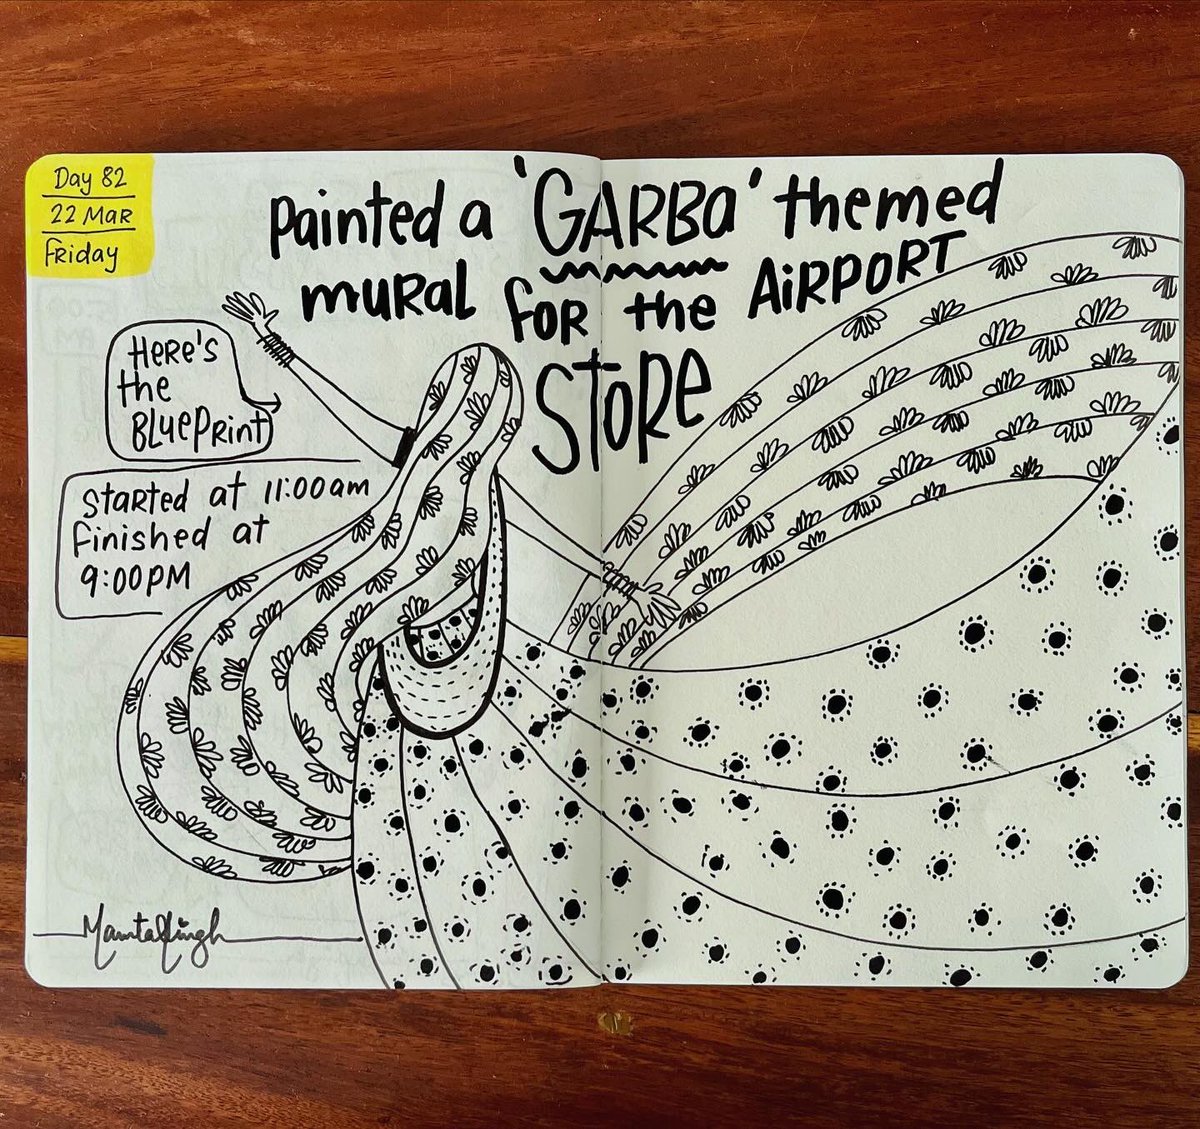 Day 82
22 Mar
Friday
Painted a 'GARBa' themed
mural for the AiRPORT
Store
Here's
the
Blueprint
Started at 11:00am
Finished at
9:00PM
Mamta Singh